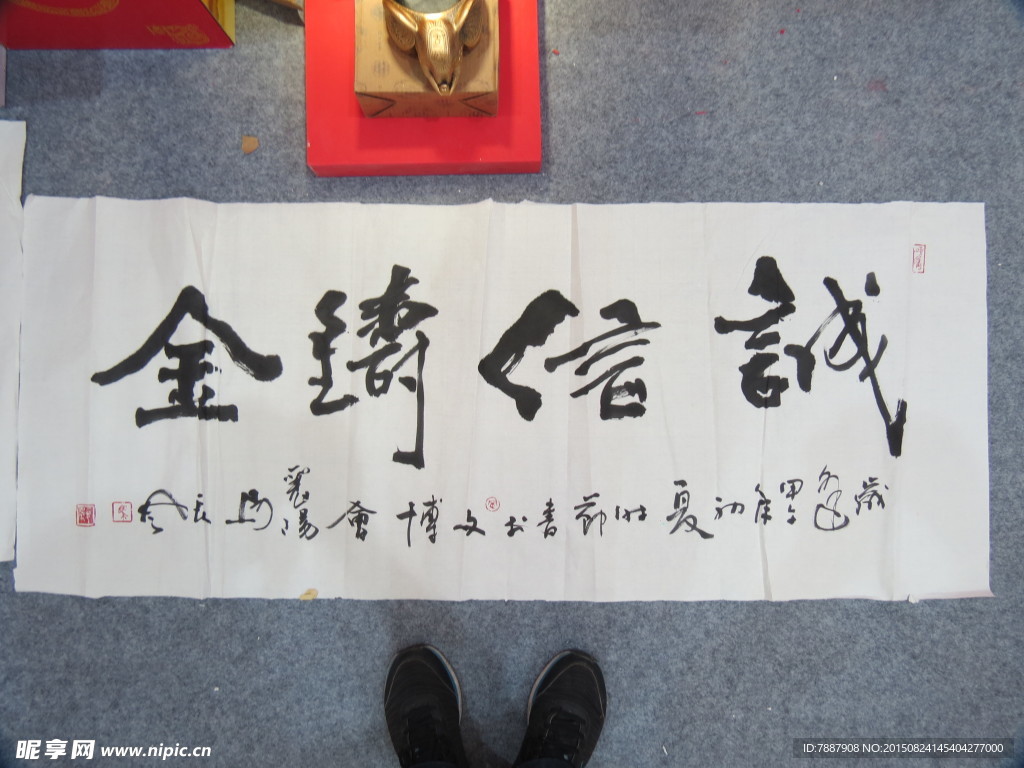 誠信鑄金
歲次逢甲午年初夏時節書於文博會襄陽山
昵享网 www.nipic.cn
ID:7887908 NO:20150824145404277000